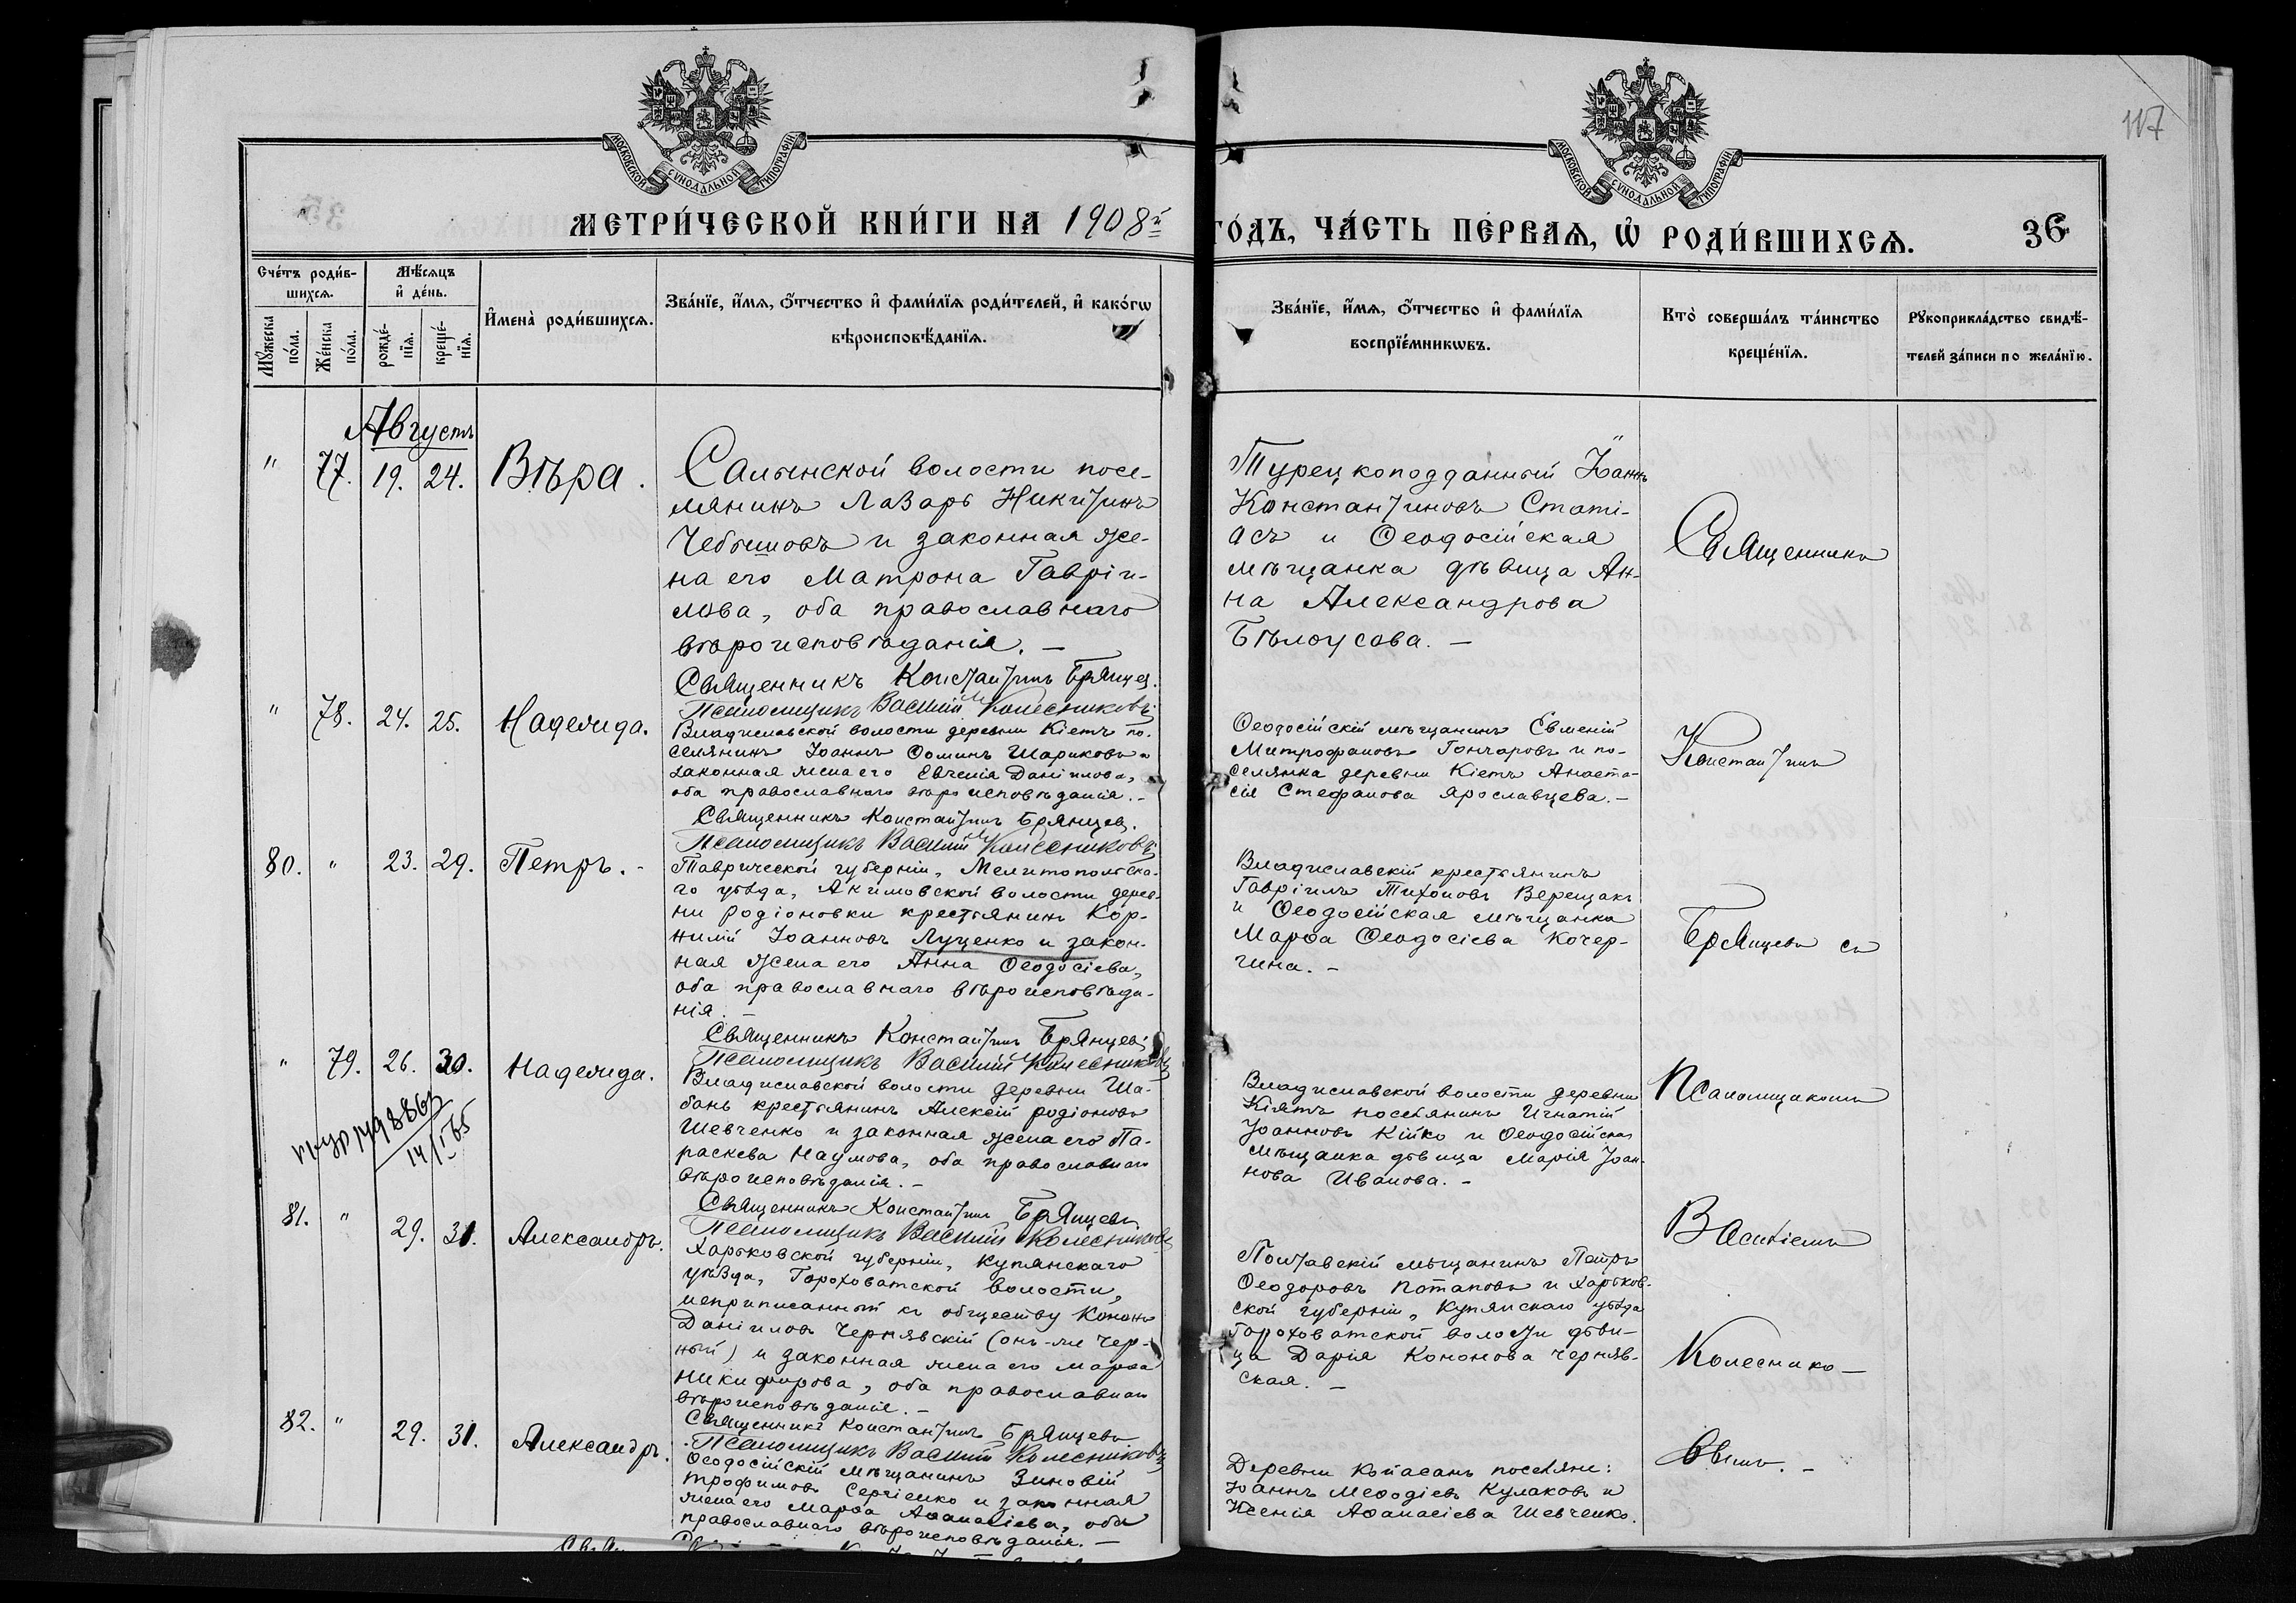 117
МОСКОВСКОЙ СУНОДАЛЬНОЙ ТИПОГРАФІИ
МОСКОВСКОЙ СУНОДАЛЬНОЙ ТИПОГРАФІИ
МЕТРИ́ЧЕСКОЙ КНИ́ГИ НА 1908й
ГО́ДЪ, ЧА́СТЬ ПЕ́РВАѦ, Ѽ РОДИ́ВШИХСѦ.
36
Сче́тъ роди́в-
шихсѧ.
Мꙋ́жеска
по́ла.
Же́нска
по́ла.
Мѣ́сѧцъ
и҆ де́нь.
рожде́-
нїѧ.
креще́-
нїѧ.
И҆мена̀ роди́вшихсѧ.
Зва́нїе, и҆́мѧ, ѻ҆́тчество и҆ фами́лїѧ роди́телей, и҆ како́гѡ
вѣроисповѣ́данїѧ.
Зва́нїе, и҆́мѧ, ѻ҆́тчество и҆ фами́лїѧ
воспрїе́мникѡвъ.
Кто̀ соверша́лъ та́инство
креще́нїѧ.
Рꙋкоприкла́дство свидѣ́-
телей за́писи по жела́нїю.
Августъ
" 77. 19. 24. Вѣра.
Салынской волости посе-
лянинъ Лазарь Никитинъ
Чебышовъ и законная же-
на его Матрона Гавріи-
лова, оба православнаго
вѣроисповѣданія. —
Священникъ Константинъ Брянцев.
Псаломщикъ Василій Колесниковъ
Турецкоподданный Іоаннъ
Константиновъ Стати-
асъ и Ѳеодосійская
мѣщанка дѣвица Ан-
на Александрова
Бѣлоусова. —
" 78. 24. 25. Надежда.
Владиславской волости деревни Кіетъ по-
селянинъ Іоаннъ Ѳоминъ Шариковъ и
законная жена его Евгенія Даніилова,
оба православнаго вѣроисповѣданія. -
Священникъ Константинъ Брянцев.
Псаломщикъ Василій Колесниковъ
Ѳеодосійскій мѣщанинъ Евменій
Митрофановъ Гончаровъ и по-
селянка деревни Кіетъ Анаста-
сія Стефанова Ярославцева. —
80. " 23. 29. Петръ. -
Таврической губерніи, Мелитопольска-
го уѣзда, Акимовской волости дерев-
ни Родіоновки крестьянинъ Кор-
нилій Іоанновъ Луценко и закон-
ная жена его Анна Ѳеодосіева,
оба православнаго вѣроисповѣда-
нія. —
Священникъ Константинъ Брянцевъ
Псаломщикъ Василій Колесниковъ
Владиславскій крестьянинъ
Гавріилъ Тихоновъ Верещакъ
и Ѳеодосійская мѣщанка
Марѳа Ѳеодосіева Кочер-
гина. -
" 79. 26. 30. Надежда.
98863
14/I 65
Владиславской волости деревни Ша-
бань крестьянинъ Алексій Родіоновъ
Шевченко и законная жена его Па-
раскева Наумова, оба православнаго
вѣроисповѣданія. -
Священникъ Константинъ Брянцевъ
Псаломщикъ Василій Колесниковъ
Владиславской волости деревни
Кіятъ поселянинъ Игнатій
Іоанновъ Кійко и Ѳеодосійская
мѣщанка дѣвица Марія Іоан-
нова Иванова. -
81. " 29. 31. Александръ.
Харьковской губерніи, Купянскаго
уѣзда, Гороховатской волости,
неприписанный къ обществу Кононъ
Даніиловъ Чернявскій (онъ-же Чер-
ный) и законная жена его Марѳа
Никифорова, оба православнаго
вѣроисповѣданія. -
Священникъ Константинъ Брянцевъ
Псаломщикъ Василій Колесниковъ
Полтавскій мѣщанинъ Петръ
Ѳеодоровъ Потаповъ и Харьков-
ской губерніи, Купянскаго уѣзда
Гороховатской волости дѣви-
ца Дарія Кононова Черняв-
ская. —
82. " 29. 31. Александръ.
Ѳеодосійскій мѣщанинъ Зиновій
Трофимовъ Сергіенко и законная
жена его Марѳа Аѳанасіева, оба
православнаго вѣроисповѣданія. —
Деревни Койасанъ поселяне:
Іоаннъ Меѳодіевъ Кулаковъ и
Ксенія Аѳанасіева Шевченко.
Священникъ
Константинъ
Брянцевъ съ
Псаломщикомъ
Василіемъ
Колеснико—
вымъ. —